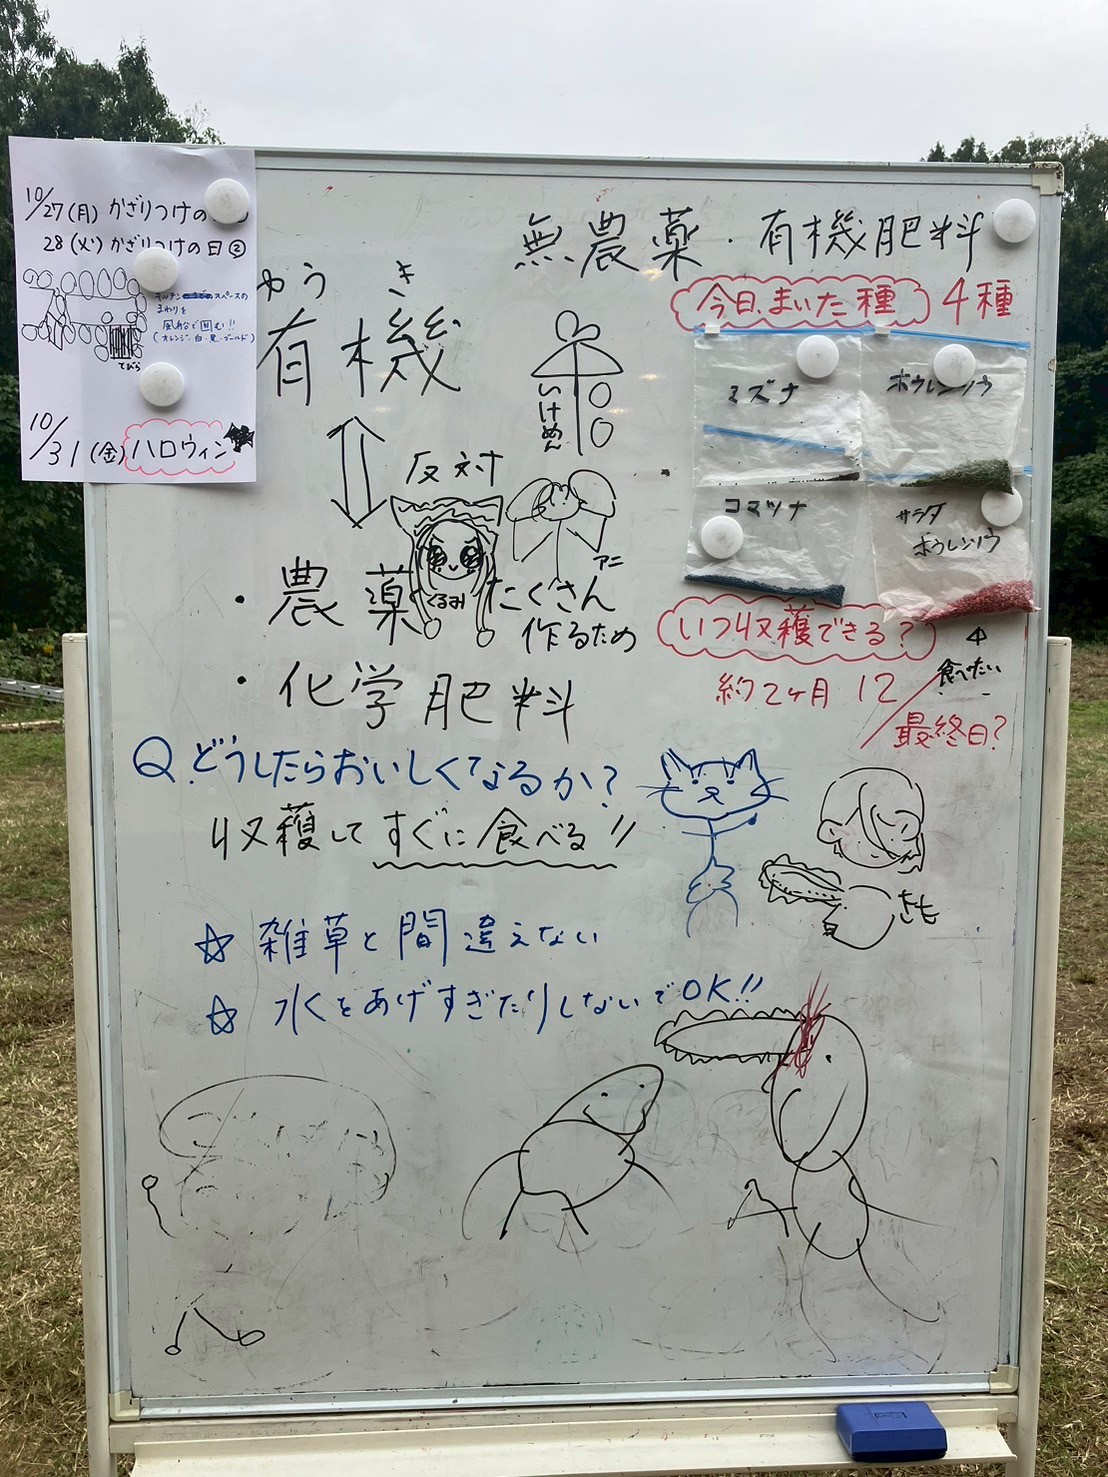 10/27(月) かざりつけの
28(火) かざりつけの日②
スペースの
まわりを
風船で囲む!!
(オレンジ・白・黒・ゴールド)
とびら
10/31(金) ハロウィン
無農薬・有機肥料
今日まいた種 4種
ミズナ
ホウレンソウ
コマツナ
サラダ
ホウレンソウ
ゆうき
有機
いけめん
反対
アニ
・農薬
くるみ
たくさん
作るため
・化学肥料
いつ収穫できる?
食べたい
約2ヶ月 12/最終日?
Q.どうしたらおいしくなるか?
収穫してすぐに食べる!!
☆ 雑草と間違えない
☆ 水をあげすぎたりしないでOK!!